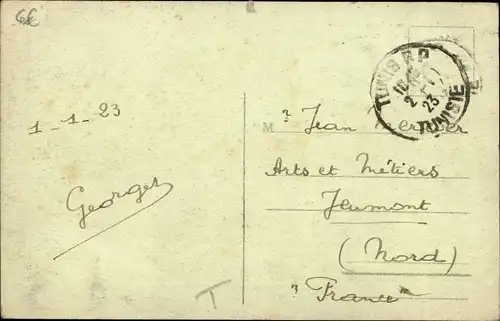 6k
TUNIS R.P.
2 - 1
23
TUNISIE
1 - 1 - 23
M r Jean
Arts et Métiers
Georges
Jeumont
(Nord)
T
France